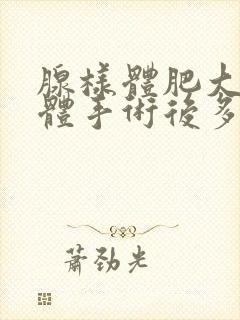 腺樣體肥大
體手術後多
蕭勁光